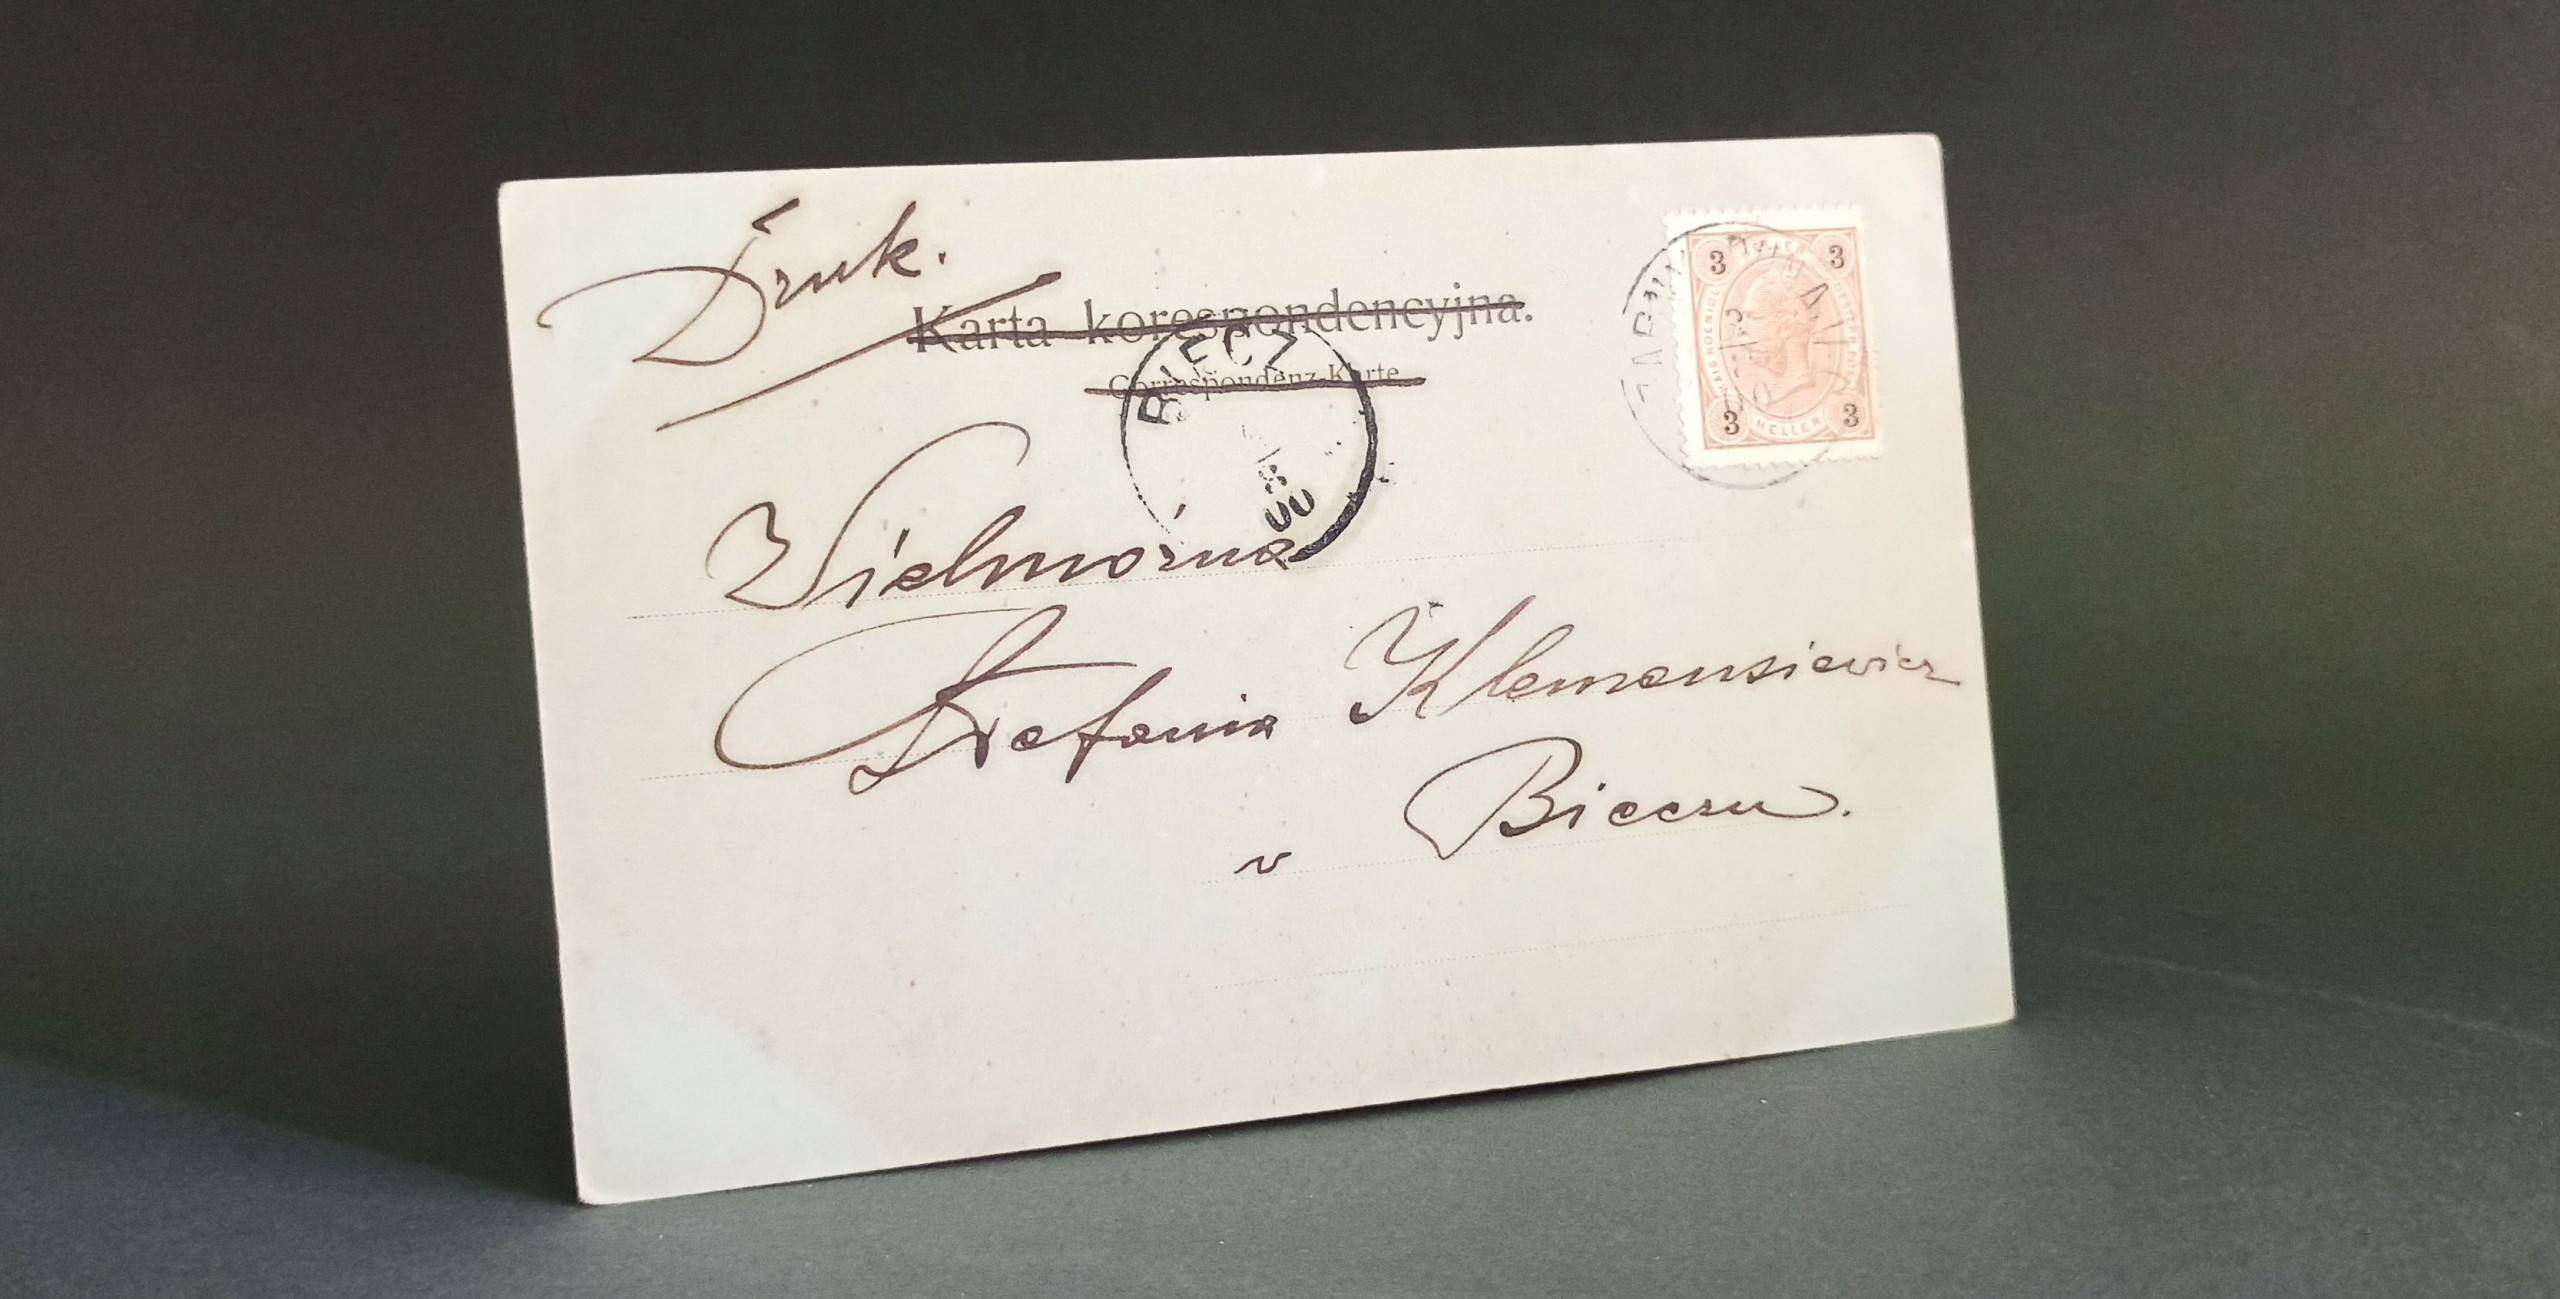 Druk.
Karta korespondencyjna.
Correspondenz-Karte
BIECZ
3 HELLER 3
3 HELLER 3
Wielmożna
Stefania Klemensiewicz
w Bieczu.